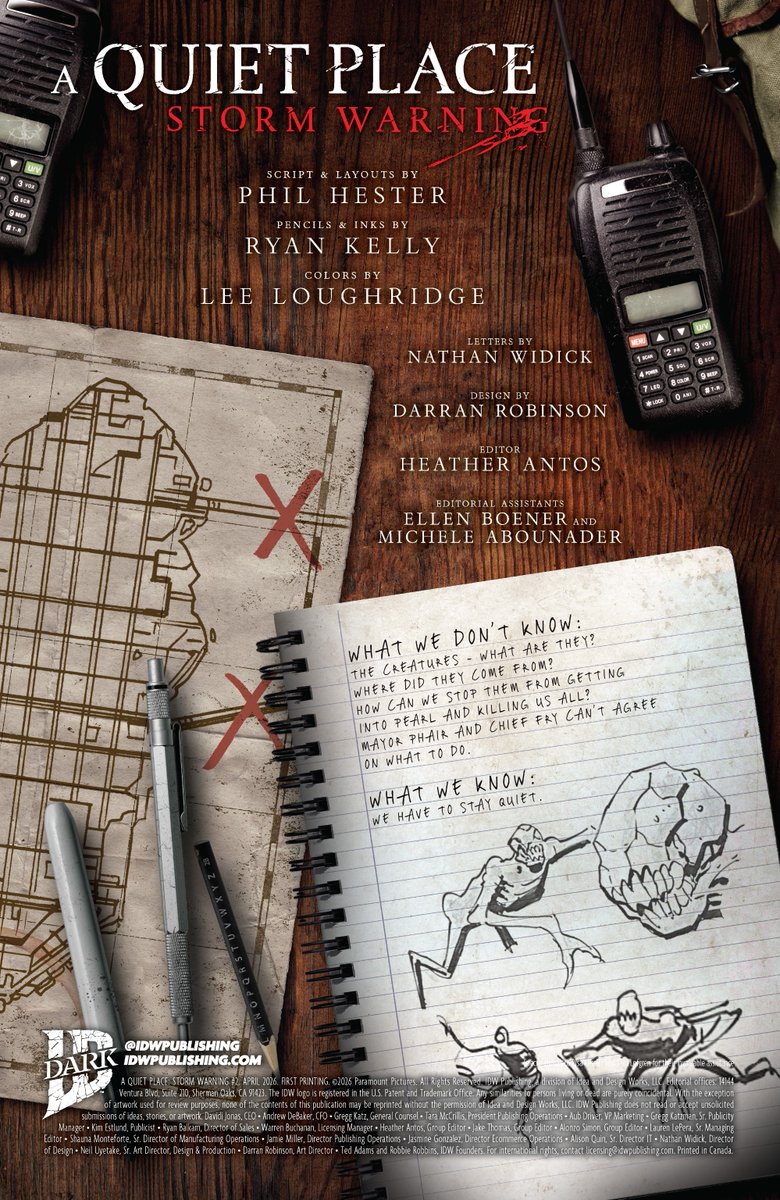 A QUIET PLACE
STORM WARNING
SCRIPT & LAYOUTS BY
PHIL HESTER
PENCILS & INKS BY
RYAN KELLY
COLORS BY
LEE LOUGHRIDGE
LETTERS BY
NATHAN WIDICK
DESIGN BY
DARRAN ROBINSON
EDITOR
HEATHER ANTOS
EDITORIAL ASSISTANTS
ELLEN BOENER AND
MICHELE ABOUNADER
U/V
3 VOX
6 SCR
9 BEEP
# T-R
MENU ▲ ▼ U/V
1 SCAN 2 PRI 3 VOX
4 POWER 5 SQL 6 SCR
7 LED 8 COLOR 9 BEEP
* LOCK 0 ANI # T-R
WHAT WE DON'T KNOW:
THE CREATURES - WHAT ARE THEY?
WHERE DID THEY COME FROM?
HOW CAN WE STOP THEM FROM GETTING
INTO PEARL AND KILLING US ALL?
MAYOR PHAIR AND CHIEF FRY CAN'T AGREE
ON WHAT TO DO.
WHAT WE KNOW:
WE HAVE TO STAY QUIET.
M N O P Q R S T U V W X Y Z
IDW
DARK
@IDWPUBLISHING
IDWPUBLISHING.COM
A QUIET PLACE: STORM WARNING #2. APRIL 2026. FIRST PRINTING. ©2026 Paramount Pictures. All Rights Reserved. IDW Publishing, a division of Idea and Design Works, LLC. Editorial offices: 14144
Ventura Blvd, Suite 210, Sherman Oaks, CA 91423. The IDW logo is registered in the U.S. Patent and Trademark Office. Any similarities to persons living or dead are purely coincidental. With the exception
of artwork used for review purposes, none of the contents of this publication may be reprinted without the permission of Idea and Design Works, LLC. IDW Publishing does not read or accept unsolicited
submissions of ideas, stories, or artwork. Davidi Jonas, CEO • Andrew DeBaker, CFO • Gregg Katz, General Counsel • Tara McCrillis, President Publishing Operations • Aub Driver, VP Marketing • Gregg Katzman, Sr. Publicity
Manager • Kim Estlund, Publicist • Ryan Balkam, Director of Sales • Warren Buchanan, Licensing Manager • Heather Antos, Group Editor • Jake Thomas, Group Editor • Alonzo Simon, Group Editor • Lauren LePera, Sr. Managing
Editor • Shauna Monteforte, Sr. Director of Manufacturing Operations • Jamie Miller, Director Publishing Operations • Jasmine Gonzalez, Director Ecommerce Operations • Alison Quin, Sr. Director IT • Nathan Widick, Director
of Design • Neil Uyetake, Sr. Art Director, Design & Production • Darran Robinson, Art Director • Ted Adams and Robbie Robbins, IDW Founders. For international rights, contact licensing@idwpublishing.com. Printed in Canada.